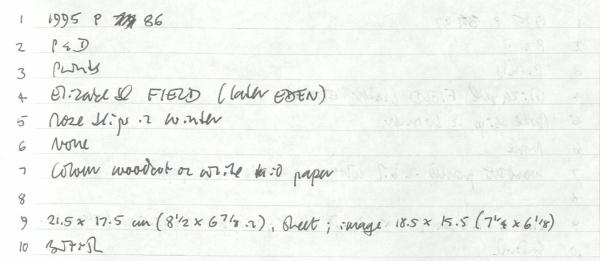 1 1995 P 86
2 P & D
3 Prints
4 Elizabeth FIELD (later EDEN)
5 Rose Hips in Winter
6 None
7 Colour woodcut on white laid paper
8
9 21.5 x 17.5 cm (8 1/2 x 6 7/8 in), sheet; image 18.5 x 15.5 (7 1/4 x 6 1/8)
10 British